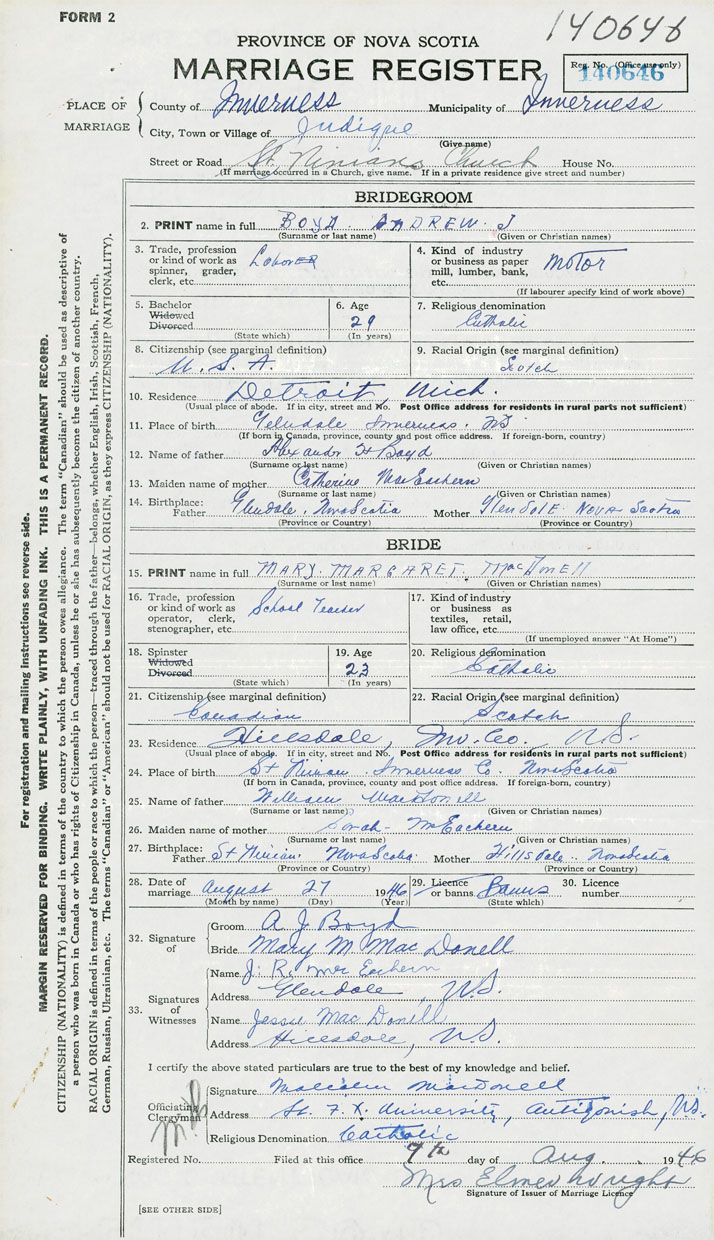 FORM 2
140646
PROVINCE OF NOVA SCOTIA
MARRIAGE REGISTER
Reg. No. (Office use only)
140646
PLACE OF MARRIAGE
County of Inverness Municipality of Inverness
City, Town or Village of Judique
(Give name)
Street or Road St. Ninians Church House No.
(If marriage occurred in a Church, give name. If in a private residence give street and number)
BRIDEGROOM
2. PRINT name in full BOYD ANDREW J
(Surname or last name) (Given or Christian names)
3. Trade, profession or kind of work as spinner, grader, clerk, etc. Laborer
4. Kind of industry or business as paper mill, lumber, bank, etc. Motor
(If labourer specify kind of work above)
5. Bachelor Widowed Divorced
(State which)
6. Age 29
(In years)
7. Religious denomination Catholic
8. Citizenship (see marginal definition) U. S. A.
9. Racial Origin (see marginal definition) Scotch
10. Residence Detroit, Mich.
(Usual place of abode. If in city, street and No. Post Office address for residents in rural parts not sufficient)
11. Place of birth Glendale Inverness. NS
(If born in Canada, province, county and post office address. If foreign-born, country)
12. Name of father Alexander Boyd
(Surname or last name) (Given or Christian names)
13. Maiden name of mother Catherine MacEachern
(Surname or last name) (Given or Christian names)
14. Birthplace: Father Glendale, Nova Scotia Mother Glendale Nova Scotia
(Province or Country) (Province or Country)
BRIDE
15. PRINT name in full MARY MARGARET MacDonell
(Surname or last name) (Given or Christian names)
16. Trade, profession or kind of work as operator, clerk, stenographer, etc. School Teacher
17. Kind of industry or business as textiles, retail, law office, etc.
(If unemployed answer "At Home")
18. Spinster Widowed Divorced
(State which)
19. Age 23
(In years)
20. Religious denomination Catholic
21. Citizenship (see marginal definition) Canadian
22. Racial Origin (see marginal definition) Scotch
23. Residence Hillsdale, Inv. Co. N.S.
(Usual place of abode. If in city, street and No. Post Office address for residents in rural parts not sufficient)
24. Place of birth St Ninian Inverness Co. Nova Scotia
(If born in Canada, province, county and post office address. If foreign-born, country)
25. Name of father William MacDonell
(Surname or last name) (Given or Christian names)
26. Maiden name of mother Sarah McEachern
(Surname or last name) (Given or Christian names)
27. Birthplace: Father St Ninian Nova Scotia Mother Hillsdale Nova Scotia
(Province or Country) (Province or Country)
28. Date of marriage August 27 1946
(Month by name) (Day) (Year)
29. Licence or banns Banns
(State which)
30. Licence number
32. Signature of
Groom A J Boyd
Bride Mary M MacDonell
33. Signatures of Witnesses
Name J. R. MacEachern
Address Glendale, N.S.
Name Jessie MacDonell
Address Hillsdale, N.S.
I certify the above stated particulars are true to the best of my knowledge and belief.
Officiating Clergyman
Signature Malcolm MacDonell
Address St. F. X. University, Antigonish, N.S.
Religious Denomination Catholic
Registered No. Filed at this office 9th day of Aug. 1946
Mrs Elmer Wright
Signature of Issuer of Marriage Licence
[SEE OTHER SIDE]
For registration and mailing instructions see reverse side.
MARGIN RESERVED FOR BINDING. WRITE PLAINLY, WITH UNFADING INK. THIS IS A PERMANENT RECORD.
CITIZENSHIP (NATIONALITY) is defined in terms of the country to which the person owes allegiance. The term "Canadian" should be used as descriptive of
a person who was born in Canada or who has rights of Citizenship in Canada, unless he or she has subsequently become the citizen of another country.
RACIAL ORIGIN is defined in terms of the people or race to which the person—traced through the father—belongs, whether English, Irish, Scottish, French,
German, Russian, Ukrainian, etc. The terms "Canadian" or "American" should not be used for RACIAL ORIGIN, as they express CITIZENSHIP (NATIONALITY).